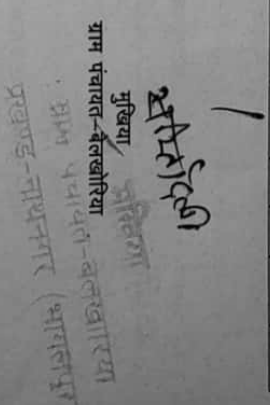 मुखिया
ग्राम पंचायत-बेलखोरिया
मुखिया
ग्राम पंचायत-बेलखोरिया
प्रखण्ड-नाथनगर (भागलपुर